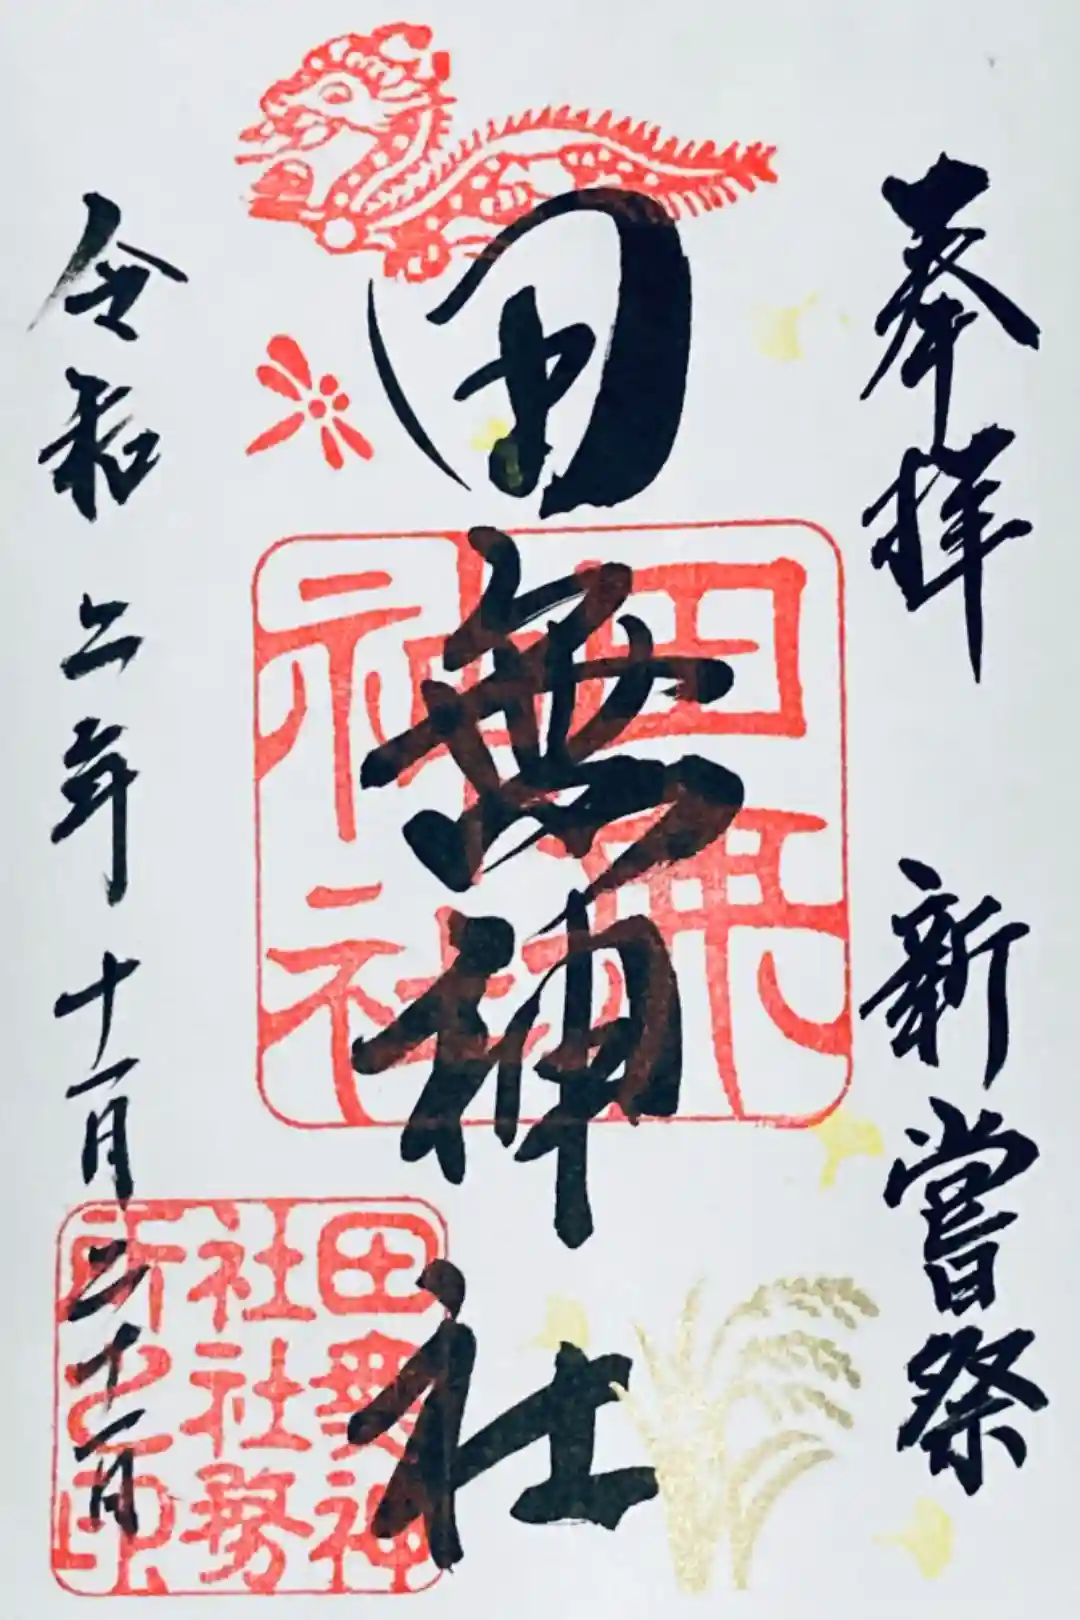 奉拝 新嘗祭
田無神社
田無神社
令和二年十一月二十一日
田無神社社務所之印